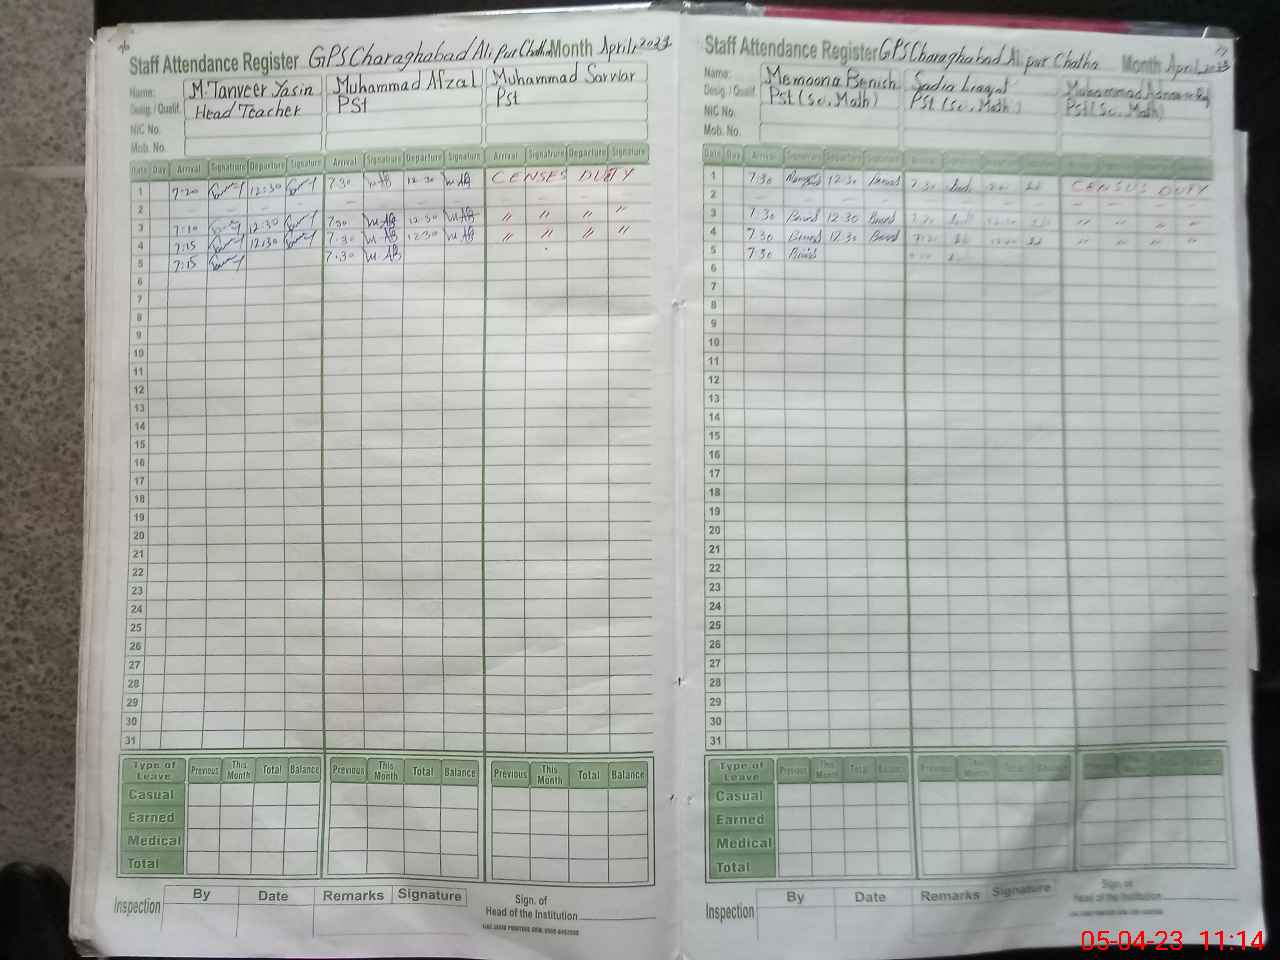 Staff Attendance Register GPS Charaghabad Alipur Chatha Month April, 2023
Name: M. Tanveer Yasin Muhammad Afzal Muhammad Sarwar
Desig. / Qualif. Head Teacher PSt Pst
NIC No.
Mob. No.
Date Day Arrival Signature Departure Signature Arrival Signature Departure Signature Arrival Signature Departure Signature
1 7:20 12:30 7:30 12:30 CENSES DUTY
2 — — — — — — — — — — — —
3 7:10 12:30 7:30 12:30 〃 〃 〃 〃
4 7:15 12:30 7:30 12:30 〃 〃 〃 〃
5 7:15 7:30
6
7
8
9
10
11
12
13
14
15
16
17
18
19
20
21
22
23
24
25
26
27
28
29
30
31
Type of Leave Previous This Month Total Balance Previous This Month Total Balance Previous This Month Total Balance
Casual
Earned
Medical
Total
Inspection By Date Remarks Signature Sign. of
Head of the Institution
Staff Attendance Register GPS Charaghabad Alipur Chatha Month April, 2023
Name: Memoona Benish Sadia Liaqat Muhammad
Desig. / Qualif. Pst (Sc. Math) PSt (Sc. Math) Pst (Sc. Math)
NIC No.
Mob. No.
Date Day Arrival Signature Departure Signature Arrival Signature Departure Signature Arrival Signature Departure Signature
1 7:30 12:30 7:30 CENSUS DUTY
2 — — — —
3 7:30 12:30 7:30 〃 〃 〃 〃
4 7:30 12:30 〃 〃 〃 〃
5 7:30
6
7
8
9
10
11
12
13
14
15
16
17
18
19
20
21
22
23
24
25
26
27
28
29
30
31
Type of Leave Previous This Month Total Balance Previous This Month Total Balance
Casual
Earned
Medical
Total
Inspection By Date Remarks Signature Sign. of
Head of the Institution
05-04-23 11:14